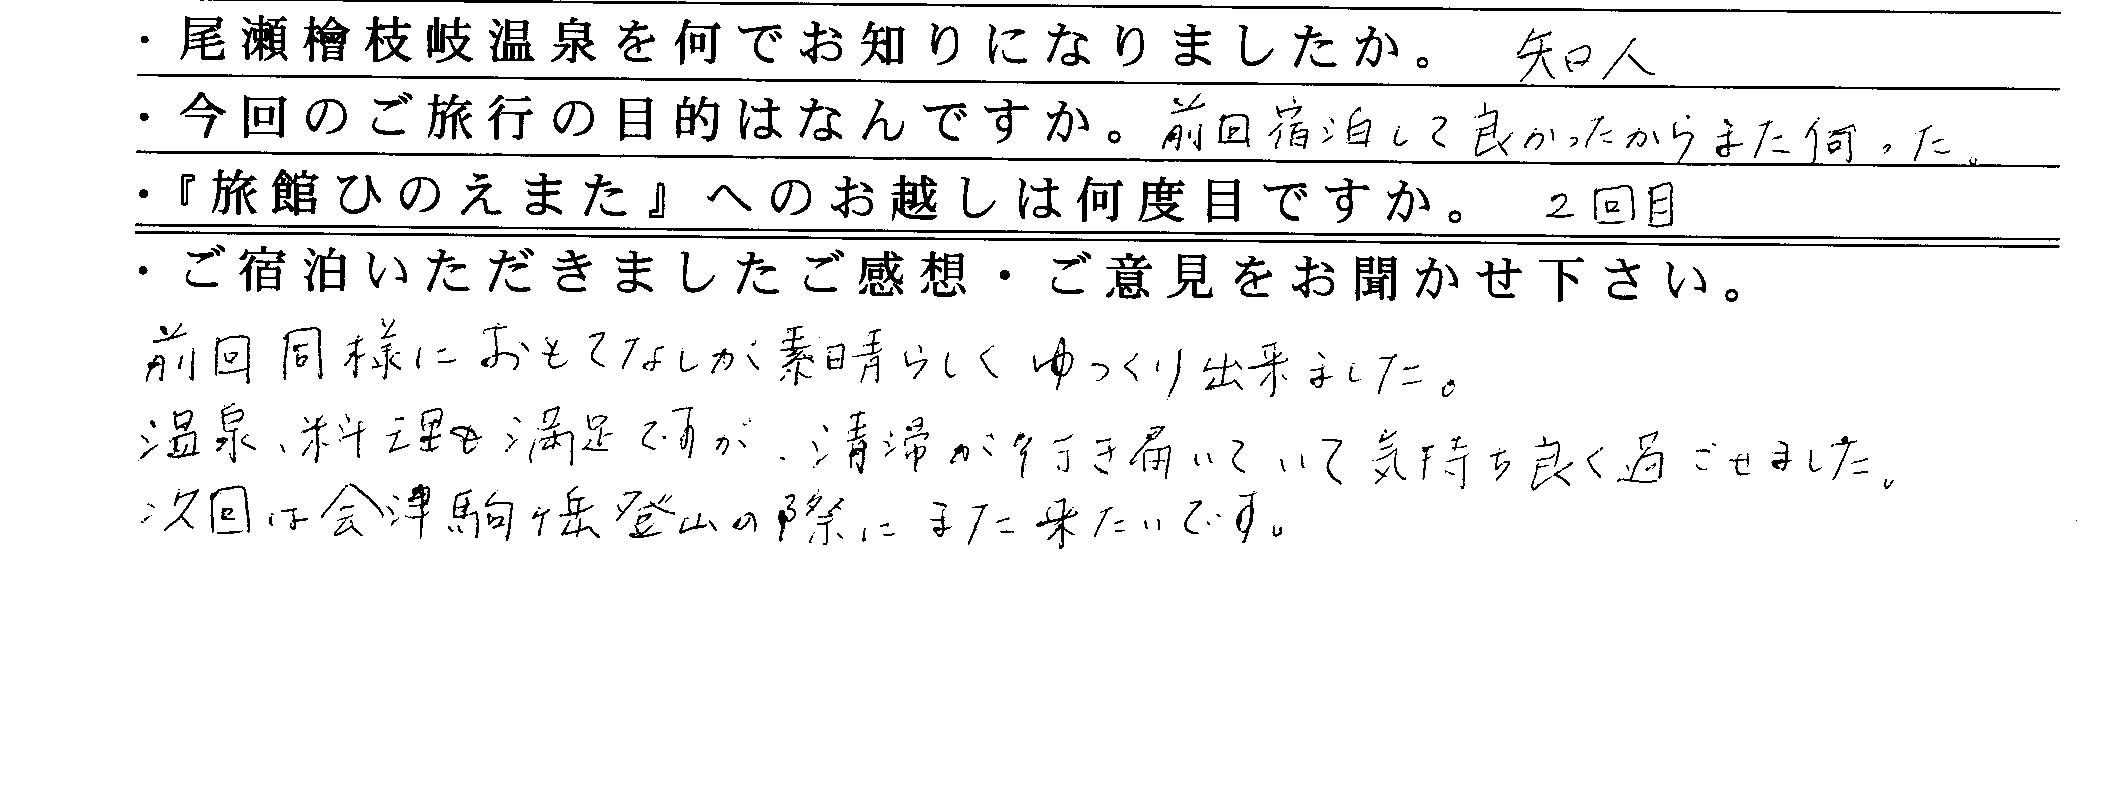 ・尾瀬檜枝岐温泉を何でお知りになりましたか。 知人
・今回のご旅行の目的はなんですか。前回宿泊して良かったからまた伺った。
・『旅館ひのえまた』へのお越しは何度目ですか。 2回目
・ご宿泊いただきましたご感想・ご意見をお聞かせ下さい。
前回同様におもてなしが素晴らしくゆっくり出来ました。
温泉、料理も満足ですが、清掃が行き届いていて気持ち良く過ごせました。
次回は会津駒ヶ岳登山の際にまた来たいです。